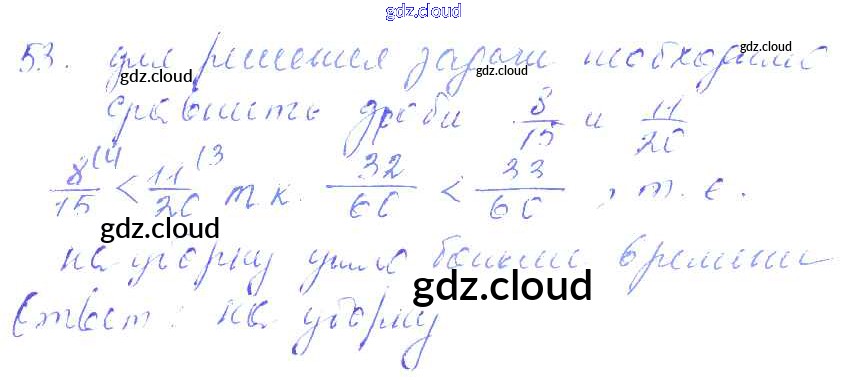 gdz.cloud
53. для решения задачи необходимо
gdz.cloud gdz.cloud
сравнить дроби 8/15 и 11/20
8/15 (4 < 11/20 (3 т.к. 32/60 < 33/60, т.е.
gdz.cloud
на уборку ушло больше времени
gdz.cloud
Ответ: на уборку